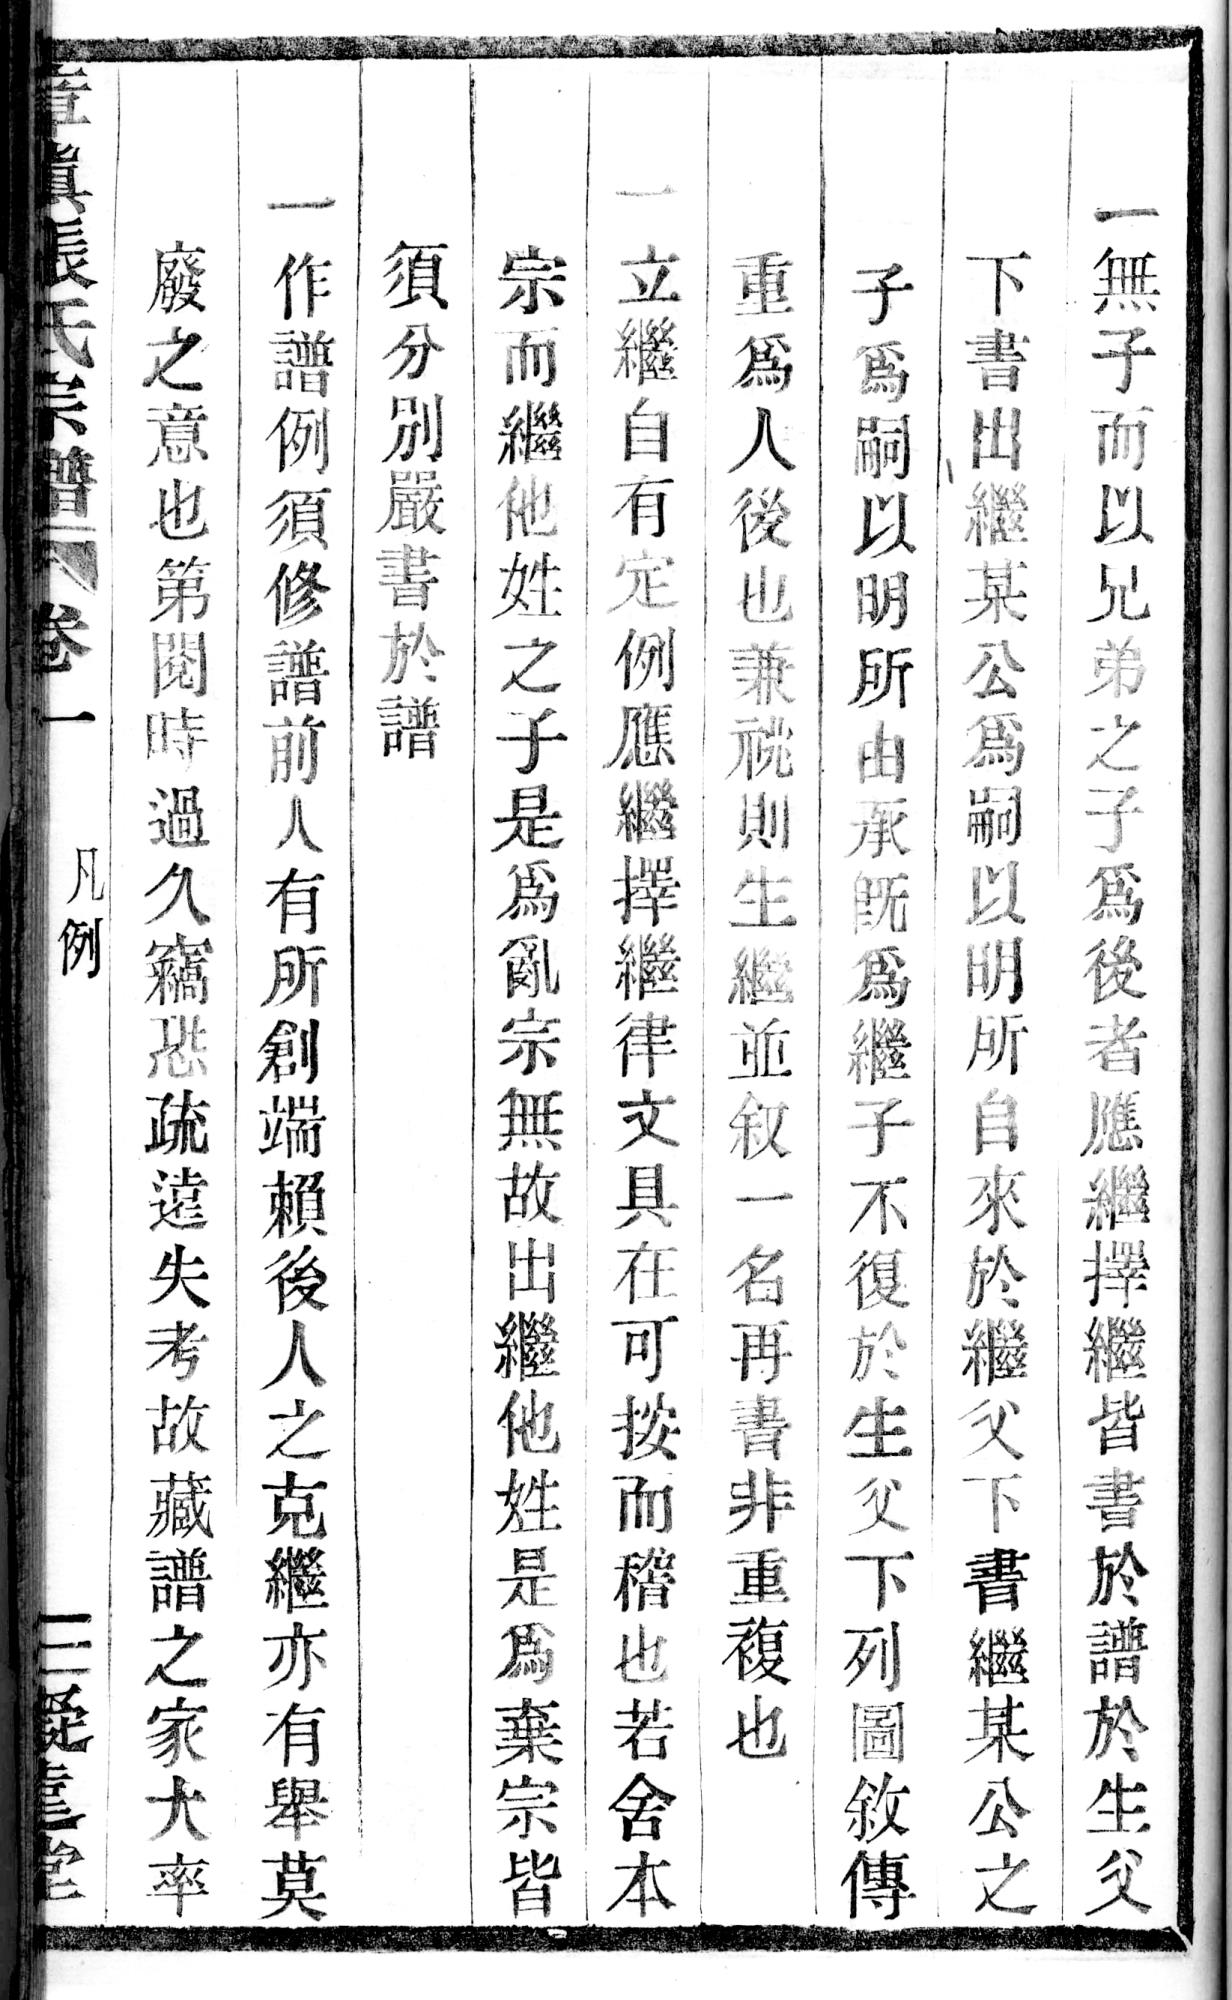 一無子而以兄弟之子爲後者應繼擇繼皆書於譜於生父
下書出繼某公爲嗣以明所自來於繼父下書繼某公之
子爲嗣以明所由承旣爲繼子不復於生父下列圖敘傳
重爲人後也兼祧則生繼並叙一名再書非重複也
一立繼自有定例應繼擇繼律文具在可按而稽也若舍本
宗而繼他姓之子是爲亂宗無故出繼他姓是爲棄宗皆
須分別嚴書於譜
一作譜例須修譜前人有所創端賴後人之克繼亦有舉莫
廢之意也第閱時過久竊恐疏遠失考故藏譜之家大率
張氏宗譜 卷一 凡例 堂